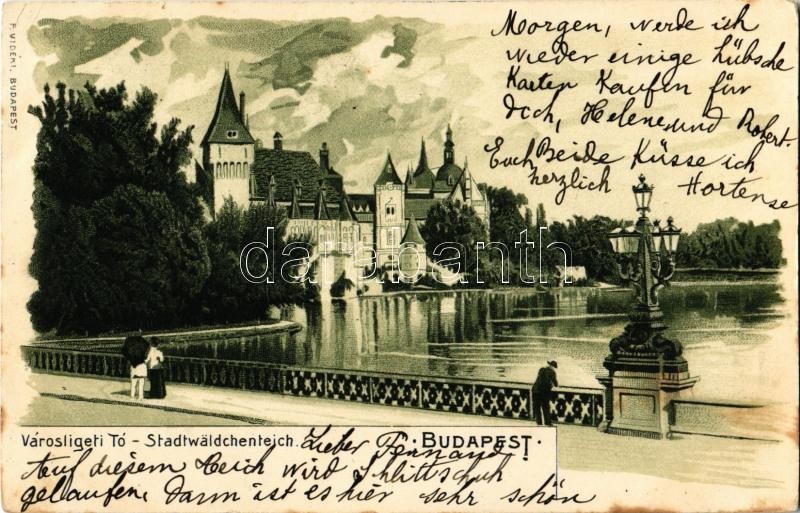 F. VIDÉKI, BUDAPEST
Morgen, werde ich
wieder einige hübsche
Karten Kaufen für
Dich, Helene, und Robert.
Euch Beide Küsse ich
herzlich Hortense
darabanth
Városligeti Tó - Stadtwäldchenteich. · BUDAPEST ·
Lieber Fernand!
Auf diesem Teich wird Schlittschuh
gelaufen, Dann ist es hier sehr schön